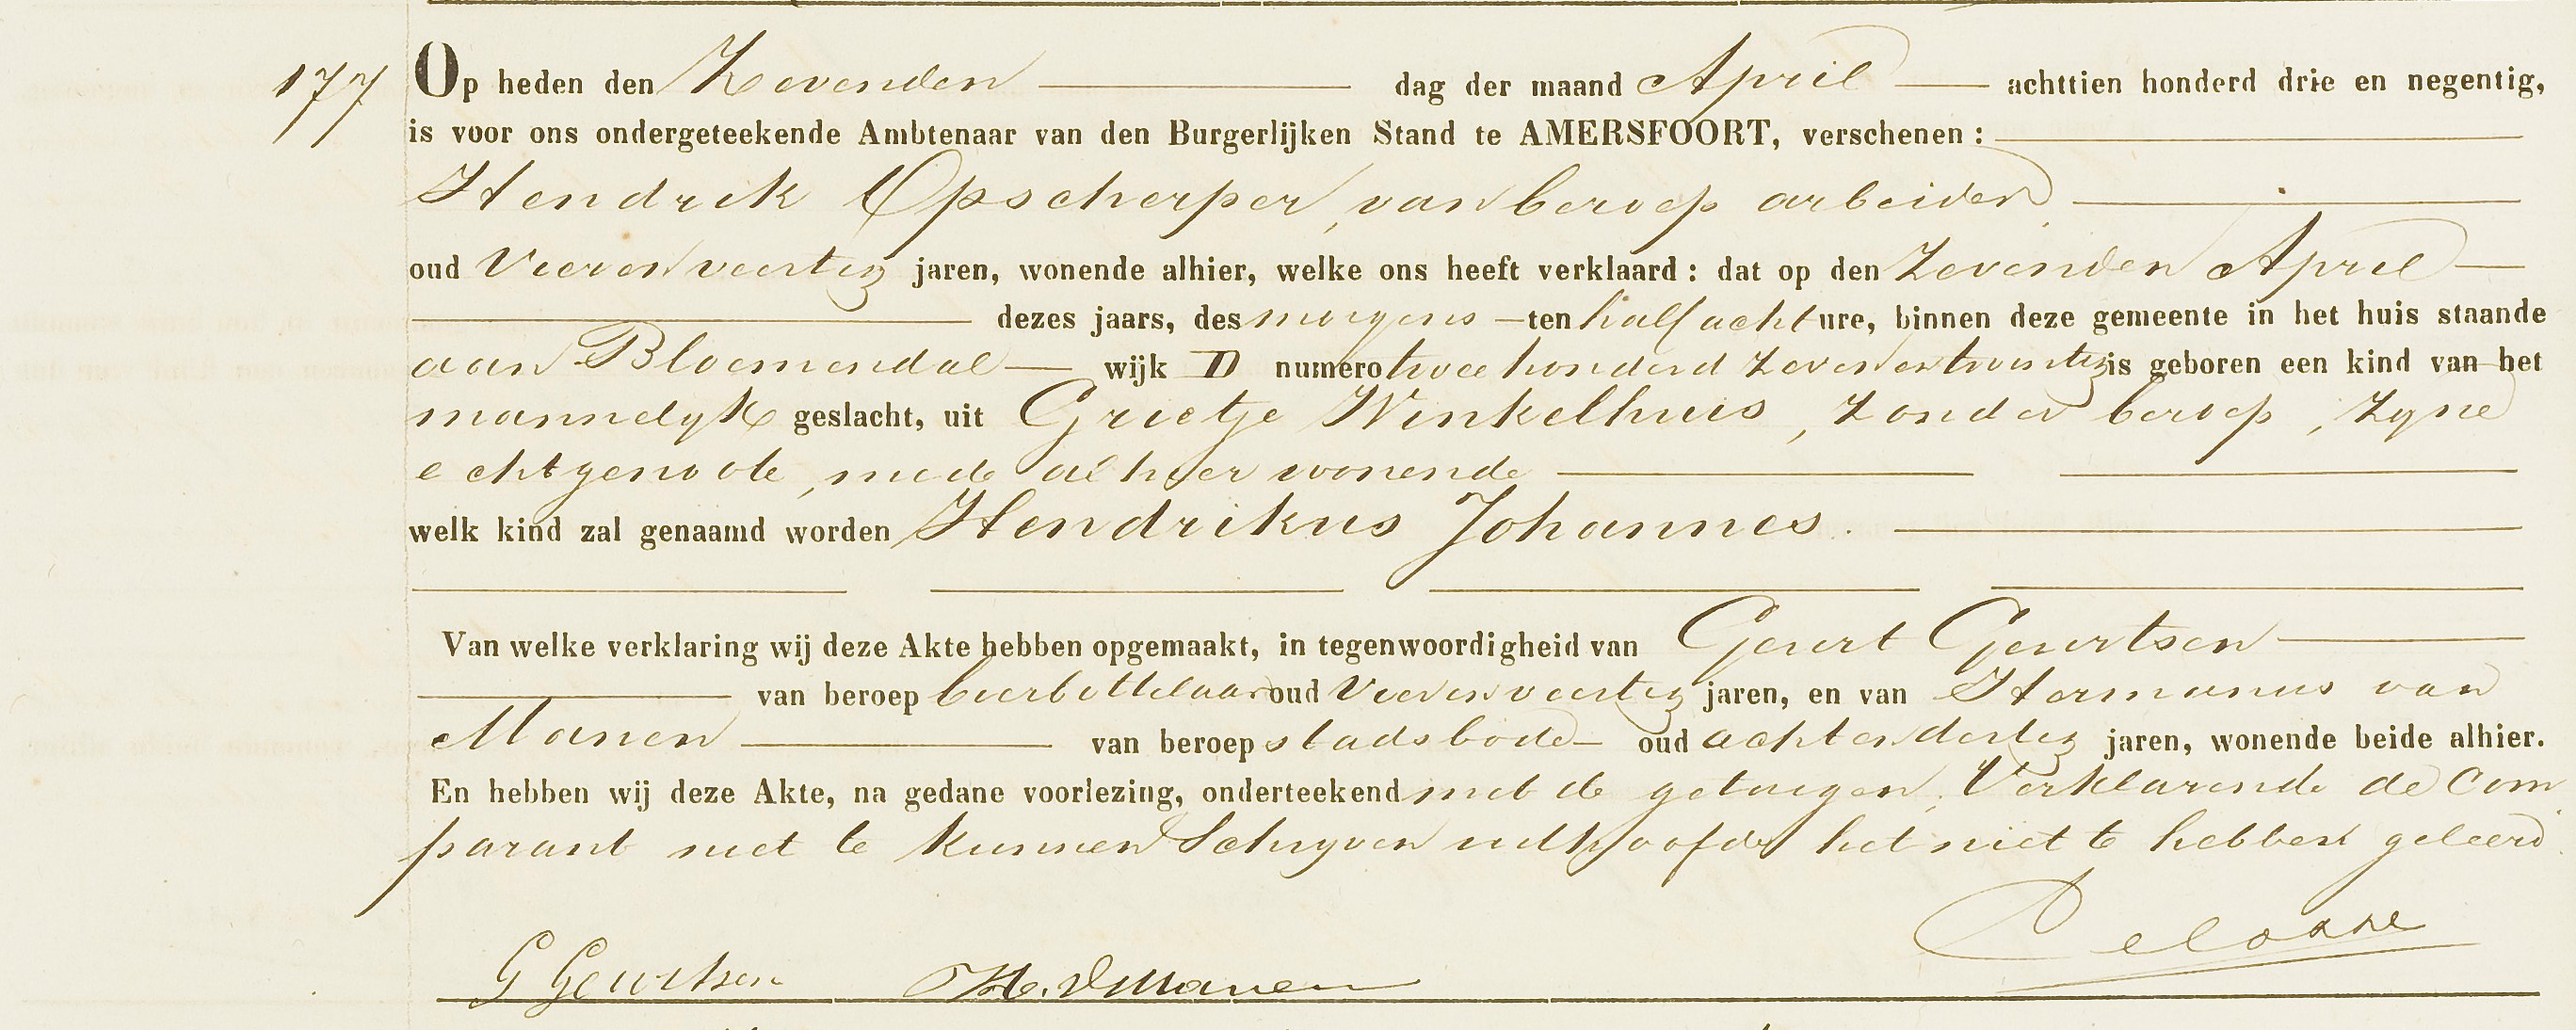 177 Op heden den Zevenden dag der maand April achttien honderd drie en negentig,
is voor ons ondergeteekende Ambtenaar van den Burgerlijken Stand te AMERSFOORT, verschenen :
Hendrik Opscherper, van beroep arbeider
oud Vierenveertig jaren, wonende alhier, welke ons heeft verklaard : dat op den Zevenden April
dezes jaars, des morgens ten half acht ure, binnen deze gemeente in het huis staande
aan Bloemendal wijk D numero twee honderd zevenentwintig is geboren een kind van het
mannelijk geslacht, uit Grietje Winkelhuis, zonder beroep, zyne
echtgenoote, mede alhier wonende
welk kind zal genaamd worden Hendrikus Johannes.
Van welke verklaring wij deze Akte hebben opgemaakt, in tegenwoordigheid van Geurt Geurtsen
van beroep bierbottelaar oud Vierenveertig jaren, en van Hermanus van
Manen van beroep stadsbode oud achtendertig jaren, wonende beide alhier.
En hebben wij deze Akte, na gedane voorlezing, onderteekend met de getuigen, Verklarende de Com
parant niet te kunnen Schryven uithoofde het niet te hebben geleerd.
G Geurtsen H. v Manen